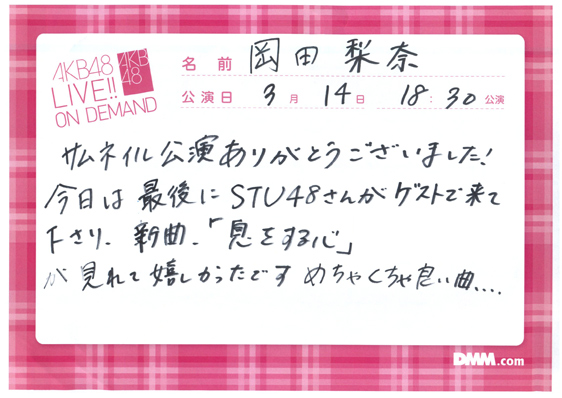 AKB48
LIVE!!
ON DEMAND
AKB
48
名前 岡田梨奈
公演日 3月14日 18:30公演
サムネイル公演ありがとうございました!
今日は最後にSTU48さんがゲストで来て
下さり、新曲、「息をする心」
が見れて嬉しかったです めちゃくちゃ良い曲....
DMM.com